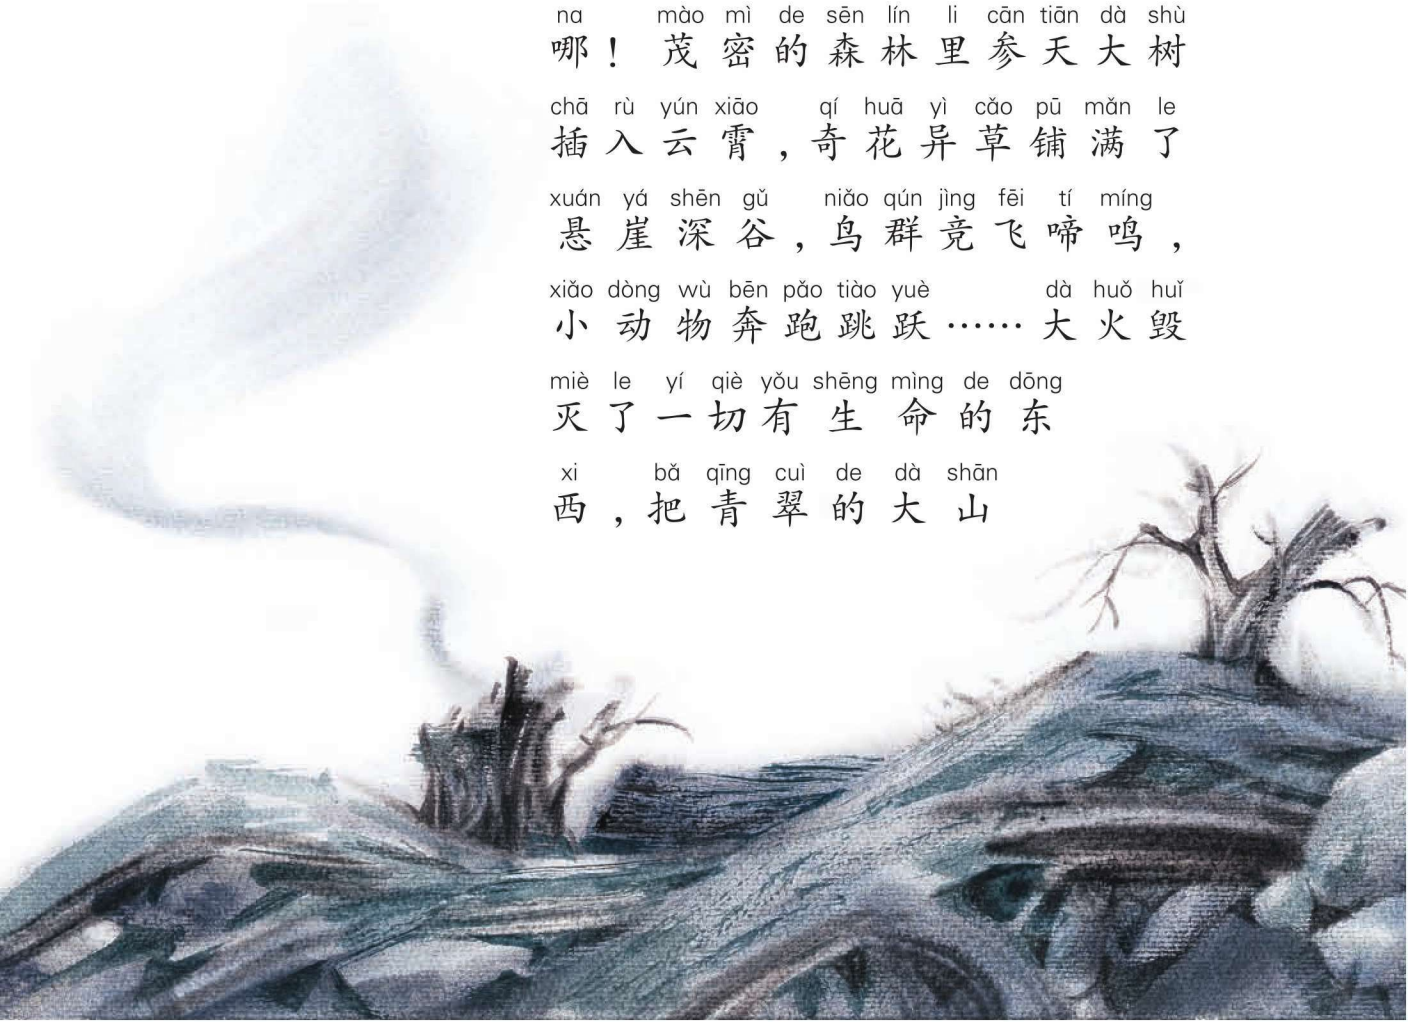 na mào mì de sēn lín li cān tiān dà shù
哪！茂密的森林里参天大树
chā rù yún xiāo qí huā yì cǎo pū mǎn le
插入云霄，奇花异草铺满了
xuán yá shēn gǔ niǎo qún jìng fēi tí míng
悬崖深谷，鸟群竞飞啼鸣，
xiǎo dòng wù bēn pǎo tiào yuè dà huǒ huǐ
小动物奔跑跳跃……大火毁
miè le yí qiè yǒu shēng mìng de dōng
灭了一切有生命的东
xi bǎ qīng cuì de dà shān
西，把青翠的大山